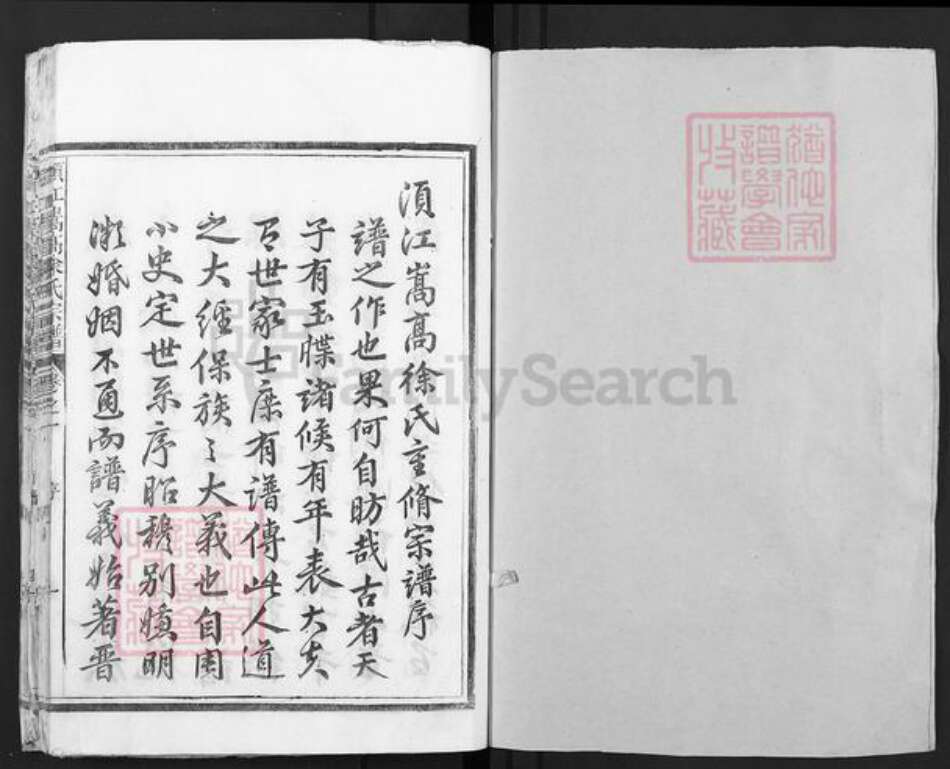 須江嵩高徐氏重脩宗譜序
譜之作也果何自昉哉古者天
子有玉牒諸候有年表大夫
有世家士庶有譜傳此人道
之大經保族之大義也自周
小史定世系序昭穆別嫌明
微婚姻不通而譜義始著晋
須江嵩高徐氏宗譜
卷之一
序
譜學會
收藏
FamilySearch